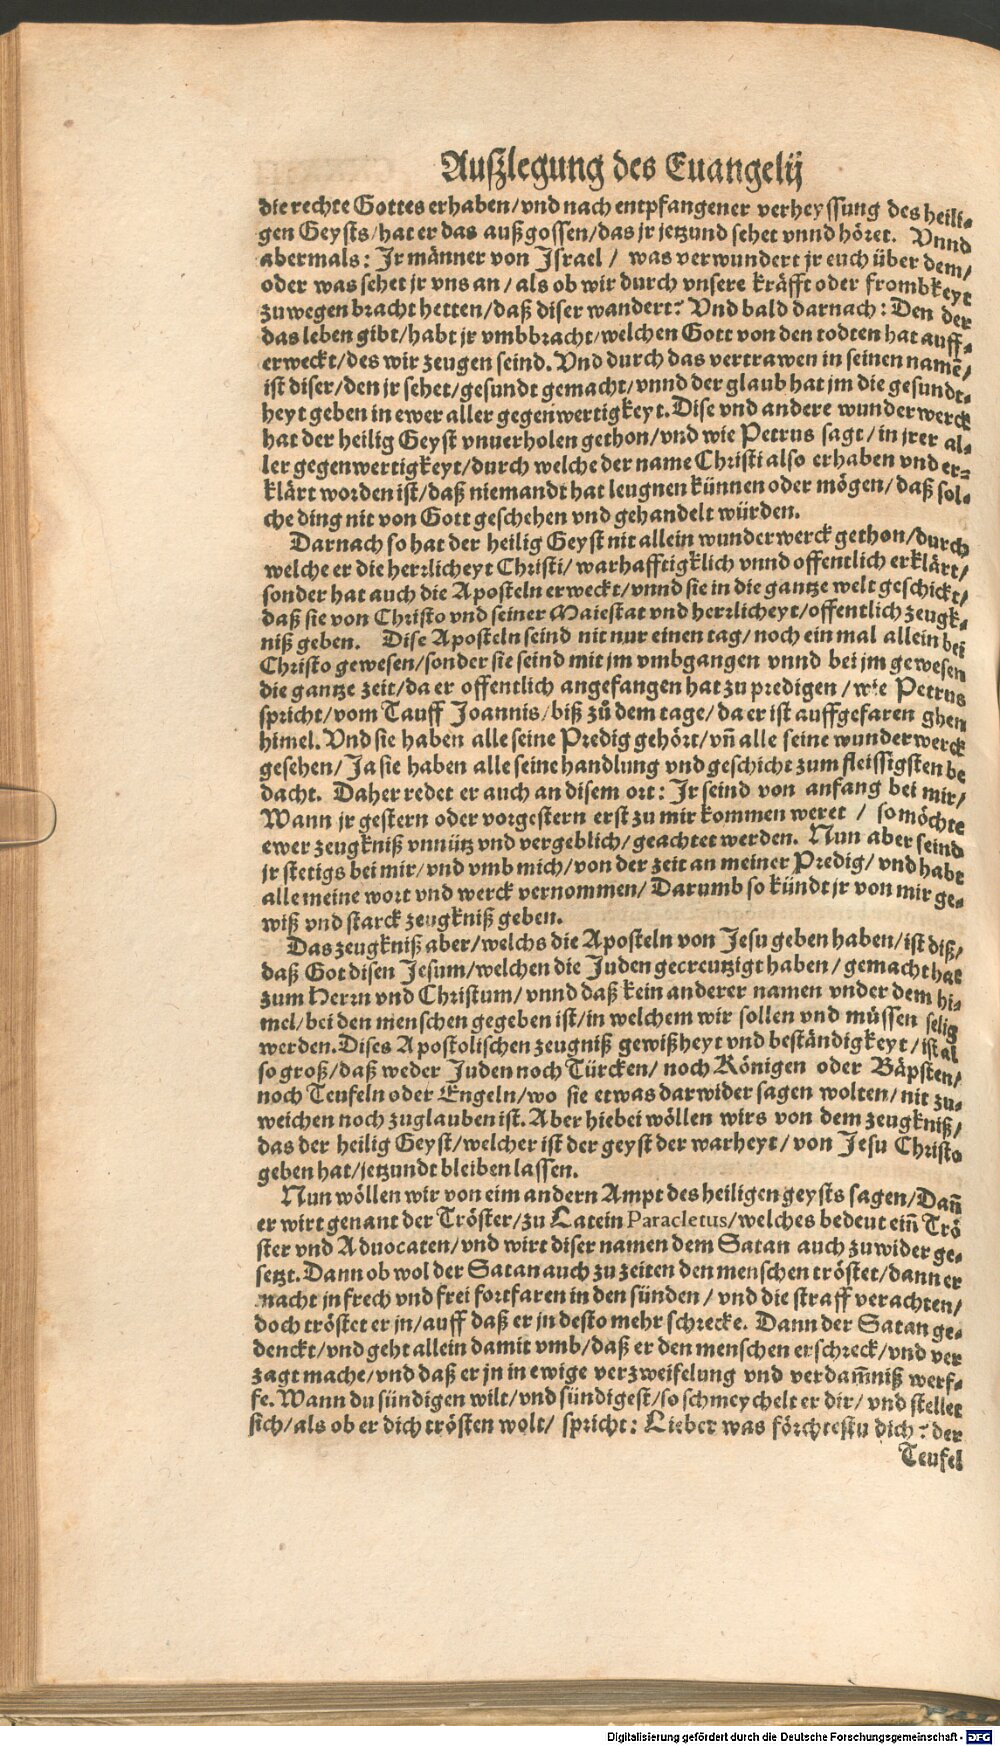 Außlegung des Euangelij
die rechte Gottes erhaben/vnd nach entpfangener verheyssung des heili-
gen Geysts/hat er das außgossen/das jr jetzund sehet vnnd höret. Vnnd
abermals: Jr männer von Jsrael / was verwundert jr euch über dem/
oder was sehet jr vns an/als ob wir durch vnsere kräfft oder frombkeyt
zuwegen bracht hetten/daß diser wandert? Vnd bald darnach: Den der
das leben gibt/habt jr vmbbracht/welchen Gott von den todten hat auff-
erweckt/des wir zeugen seind. Vnd durch das vertrawen in seinen namẽ/
ist diser/den jr sehet/gesundt gemacht/vnnd der glaub hat jm die gesundt-
heyt geben in ewer aller gegenwertigkeyt. Dise vnd andere wunderwerck
hat der heilig Geyst vnuerholen gethon/vnd wie Petrus sagt/in jrer al-
ler gegenwertigkeyt/durch welche der name Christi also erhaben vnd er-
klärt worden ist/daß niemandt hat leugnen künnen oder mögen/daß sol-
che ding nit von Gott geschehen vnd gehandelt würden.
Darnach so hat der heilig Geyst nit allein wunderwerck gethon/durch
welche er die herrlicheyt Christi/warhafftigklich vnnd offentlich erklärt/
sonder hat auch die Aposteln erweckt/vnnd sie in die gantze welt geschickt/
daß sie von Christo vnd seiner Maiestat vnd herrlicheyt/offentlich zeugk-
niß geben. Dise Aposteln seind nit nur einen tag/noch ein mal allein bei
Christo gewesen/sonder sie seind mit jm vmbgangen vnnd bei jm gewesen
die gantze zeit/da er offentlich angefangen hat zu predigen/wie Petrus
spricht/vom Tauff Joannis/biß zů dem tage/da er ist auffgefaren ghen
himel. Vnd sie haben alle seine Predig gehört/vñ alle seine wunderwerck
gesehen/Ja sie haben alle seine handlung vnd geschicht zum fleissigsten be
dacht. Daher redet er auch an disem ort: Jr seind von anfang bei mir/
Wann jr gestern oder vorgestern erst zu mir kommen weret / so möchte
ewer zeugkniß vnnütz vnd vergeblich/geachtet werden. Nun aber seind
jr stetigs bei mir/vnd vmb mich/von der zeit an meiner Predig/vnd habt
alle meine wort vnd werck vernommen/Darumb so kündt jr von mir ge-
wiß vnd starck zeugkniß geben.
Das zeugkniß aber/welchs die Aposteln von Jesu geben haben/ist diß/
daß Got disen Jesum/welchen die Juden gecreutzigt haben/gemacht hat
zum Herrn vnd Christum/vnnd daß kein anderer namen vnder dem hi-
mel/bei den menschen gegeben ist/in welchem wir sollen vnd müssen selig
werden. Dises Apostolischen zeugniß gewißheyt vnd beständigkeyt/ist al
so groß/daß weder Juden noch Türcken/noch Königen oder Bäpsten/
noch Teufeln oder Engeln/wo sie etwas darwider sagen wolten/nit zu-
weichen noch zuglauben ist. Aber hiebei wöllen wirs von dem zeugkniß/
das der heilig Geyst/welcher ist der geyst der warheyt/von Jesu Christo
geben hat/jetzundt bleiben lassen.
Nun wöllen wir von eim andern Ampt des heiligen geysts sagen/Dañ
er wirt genant der Tröster/zu Latein Paracletus/welches bedeut eiñ Trö
ster vnd Aduocaten/vnd wirt diser namen dem Satan auch zuwider ge-
setzt. Dann ob wol der Satan auch zu zeiten den menschen tröstet/dann er
macht jn frech vnd frei fortfaren in den sünden/vnd die straff verachten/
doch tröstet er jn/auff daß er jn desto mehr schrecke. Dann der Satan ge-
denckt/vnd geht allein damit vmb/daß er den menschen erschreck/vnd ver
zagt mache/vnd daß er jn in ewige verzweifelung vnd verdam̃niß werf-
fe. Wann du sündigen wilt/vnd sündigest/so schmeychelt er dir/vnd stellet
sich/als ob er dich trösten wolt/ spricht: Lieber was förchtestu dich? der
Teufel
Digitalisierung gefördert durch die Deutsche Forschungsgemeinschaft - DFG